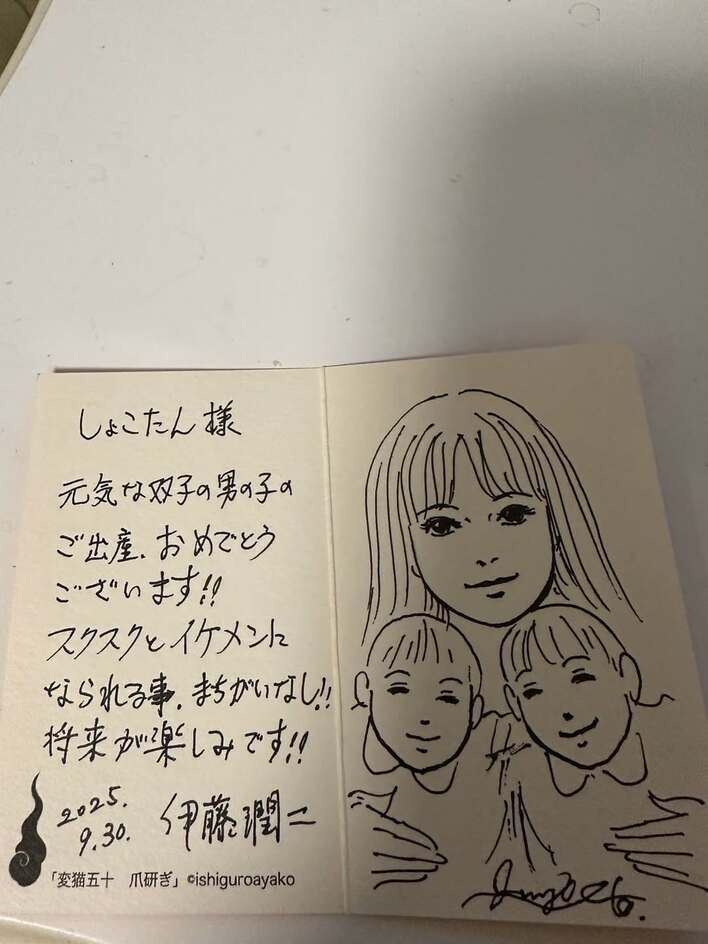 しょこたん様
元気な双子の男の子の
ご出産、おめでとう
ございます!!
スクスクとイケメンに
なられる事、まちがいなし!!
将来が楽しみです!!
2025.
9.30.
伊藤潤二
「変猫五十 爪研ぎ」©ishiguroayako